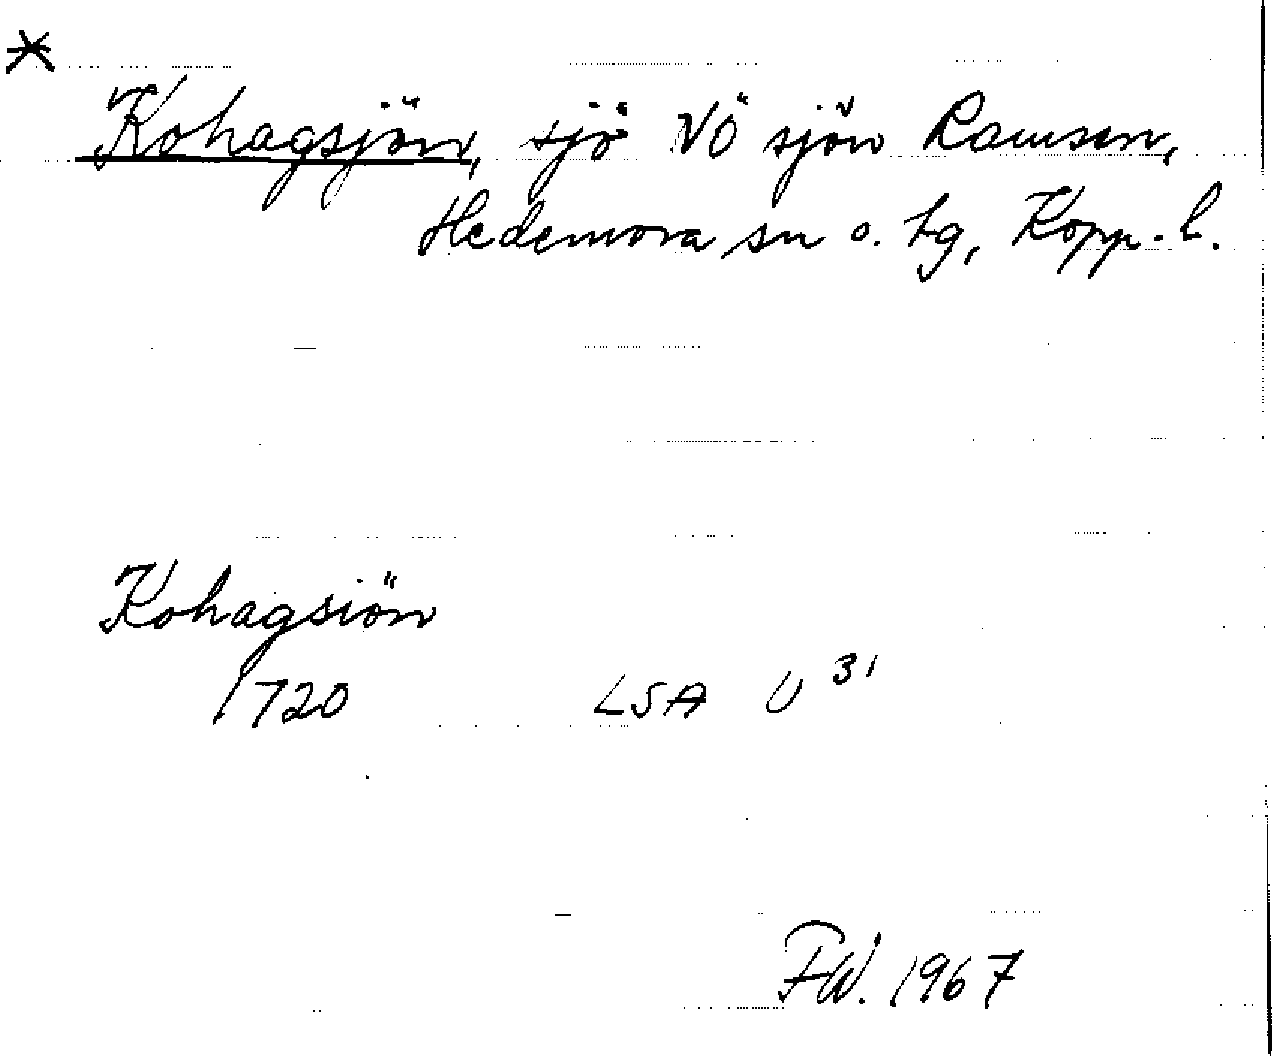 *
Kohagsjön, sjö NÖ sjön Ramsen,
Hedemora sn o. tg, Kopp. l.
Kohagsiön
1720 LSA U 31
FW. 1967